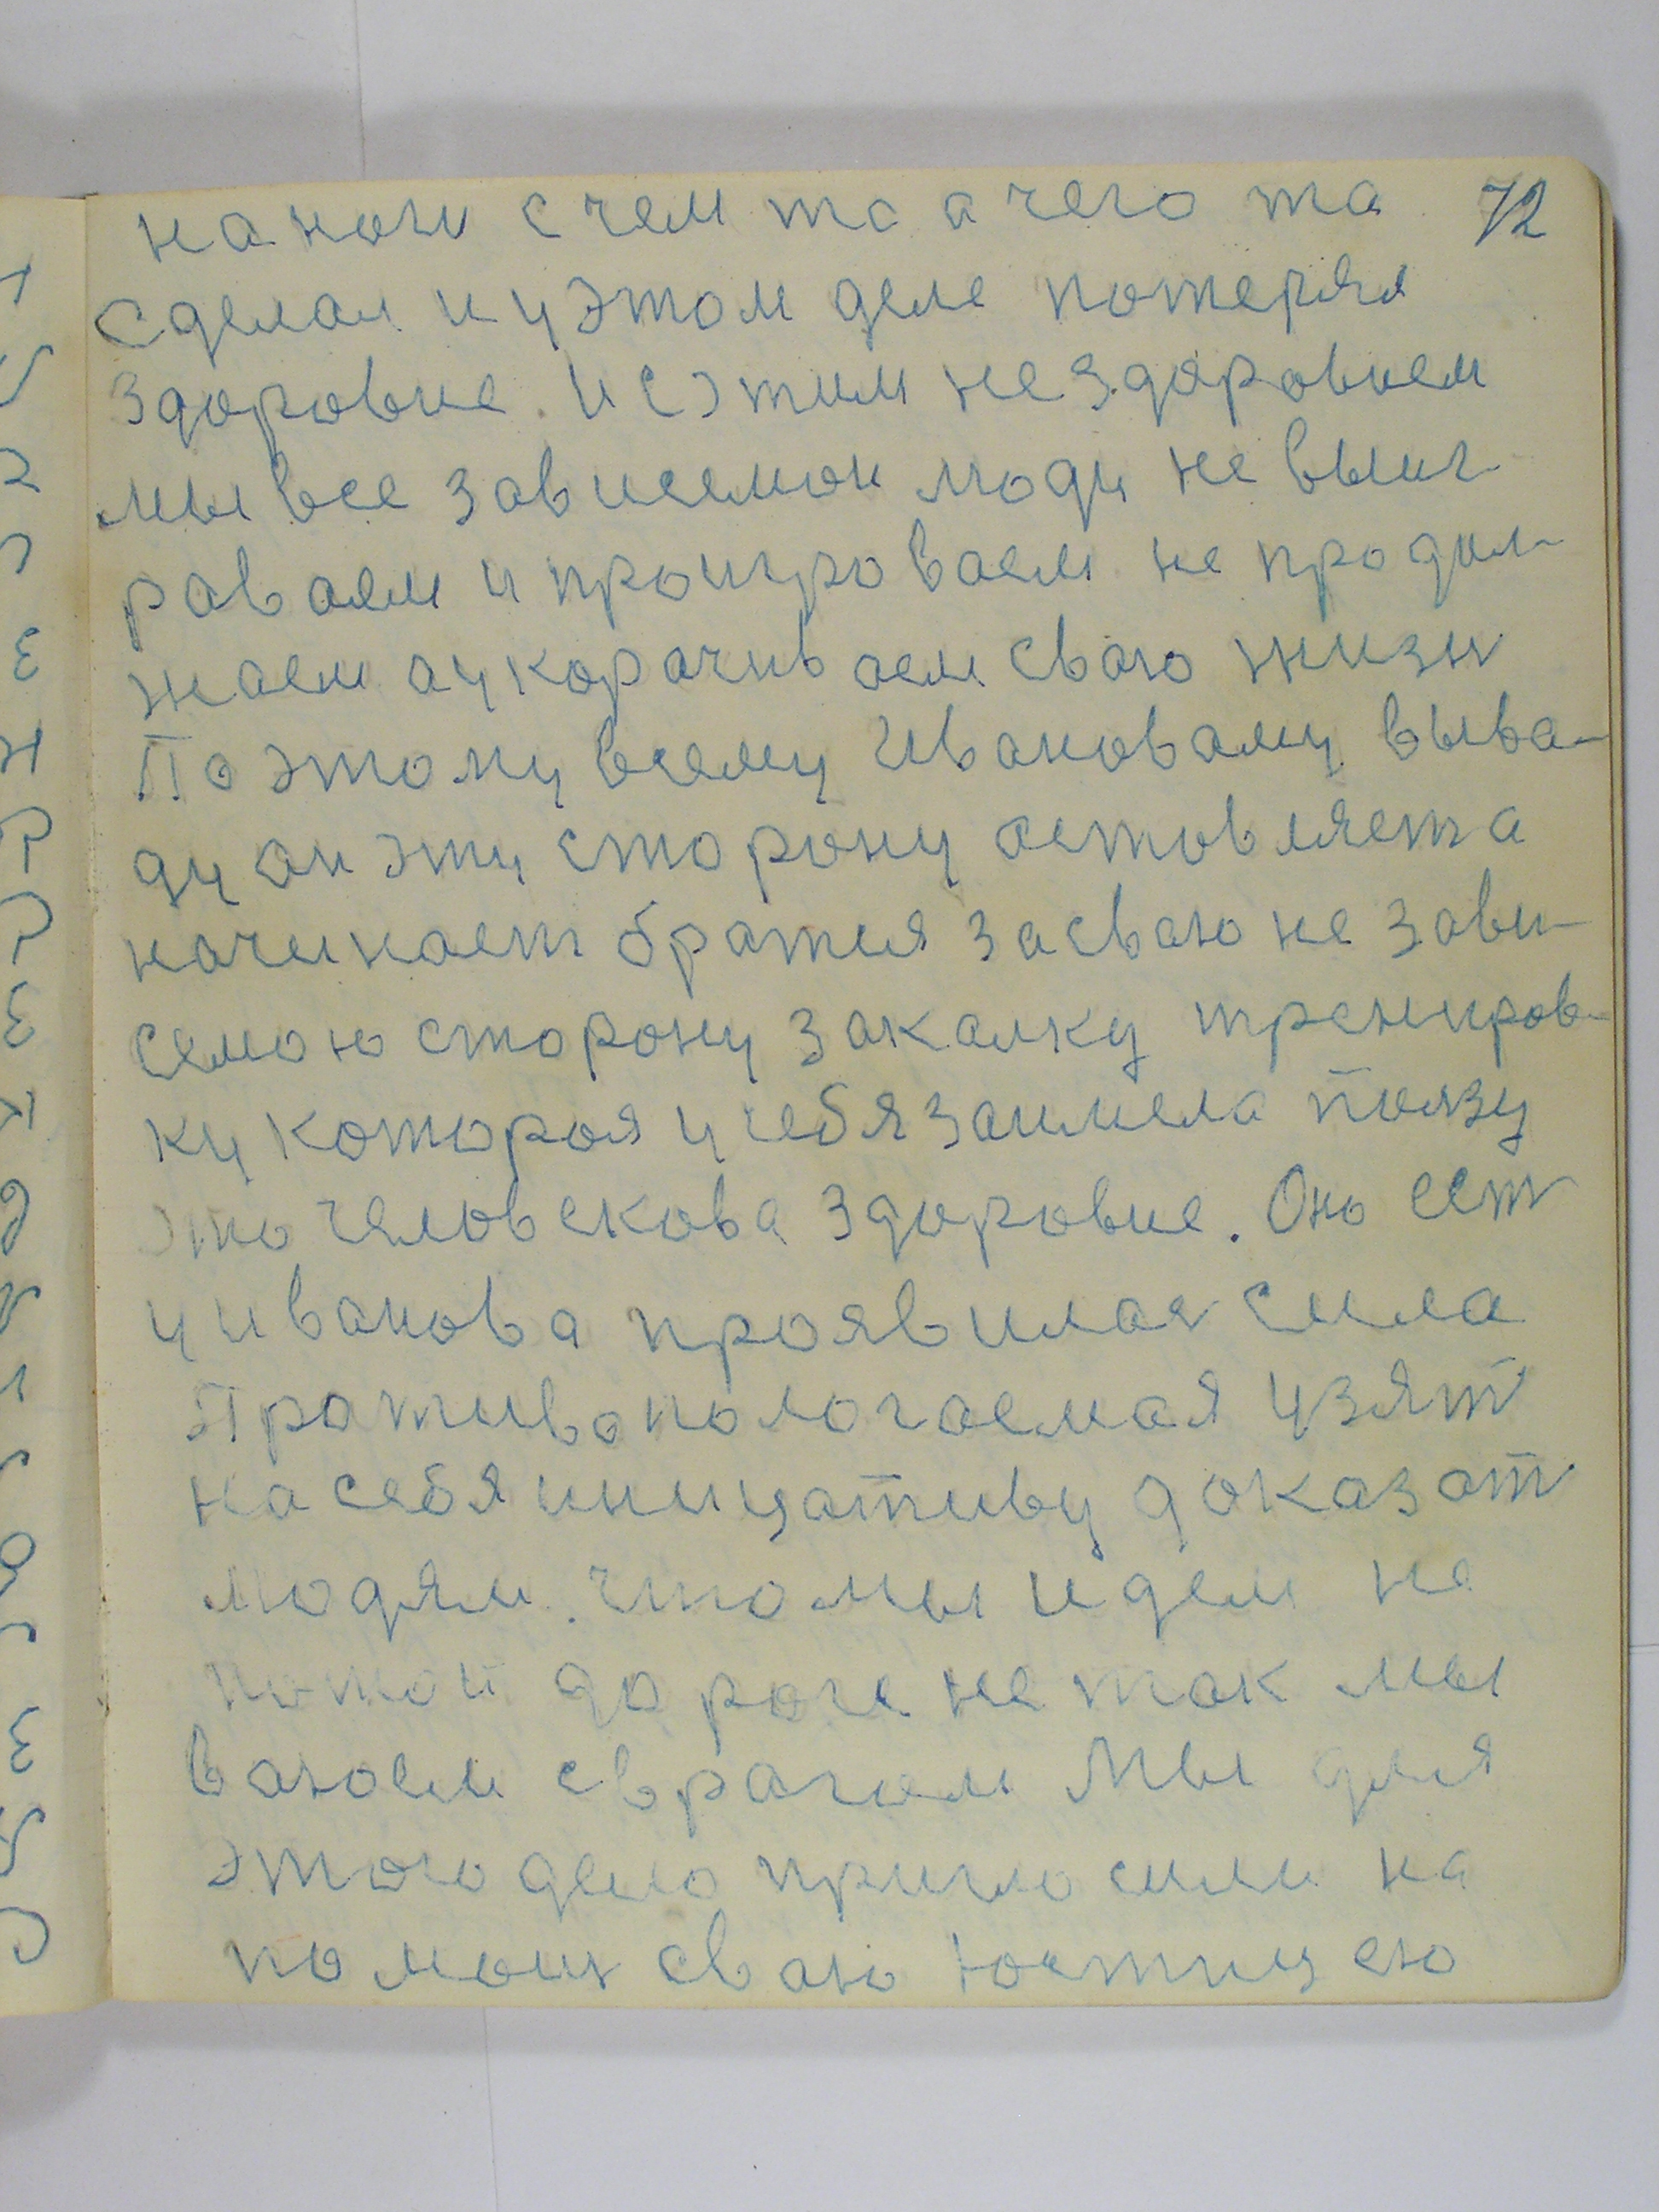 на ноги с чем то а чего та 72
сделал и у этом деле потерял
здоровие. И с этим не здаровием
мы все зависемои люди не выиг-
раваем и проиграваем не продол-
жаем а укорачиваем сваю жизн
Поэтому всему Ивановаму выва-
ду он эту сторону оставляет а
начинает братия за сваю не зави-
семою сторону закалку трениров-
ку котороя у себя заимела ползу
это человекова здоровие. Оно ест
у иванова проявилас сила
Пративопологаемая узят
на себя инициативу доказат
людям. что мы идем не
по той дороге не так мы
ваюем с врагом Мы для
этого дело пригласили на
помощ сваю юстицею